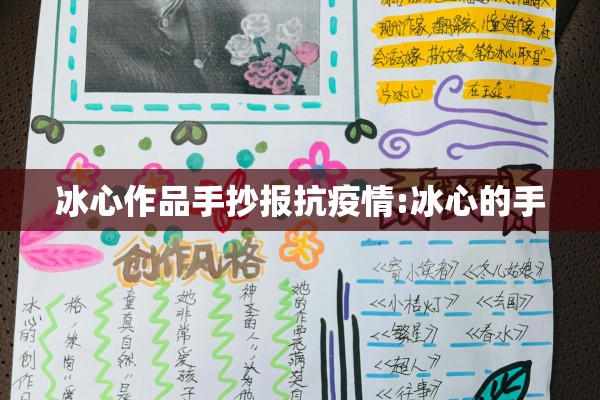 现代作家,翻译家,儿童文学作家,社
会活动家,散文家。笔名冰心,取自“一
片冰心 在玉壶”
冰心作品手抄报抗疫情:冰心的手
创作风格
冰心的创作
格,崇尚“爱
童真自然”是
她非常爱孩子
神圣的人”,认为他
她的作品充满
《寄小读者》 《冬儿姑娘》
《小桔灯》 《去国》
《繁星》 《春水》
《超人》
《往事》